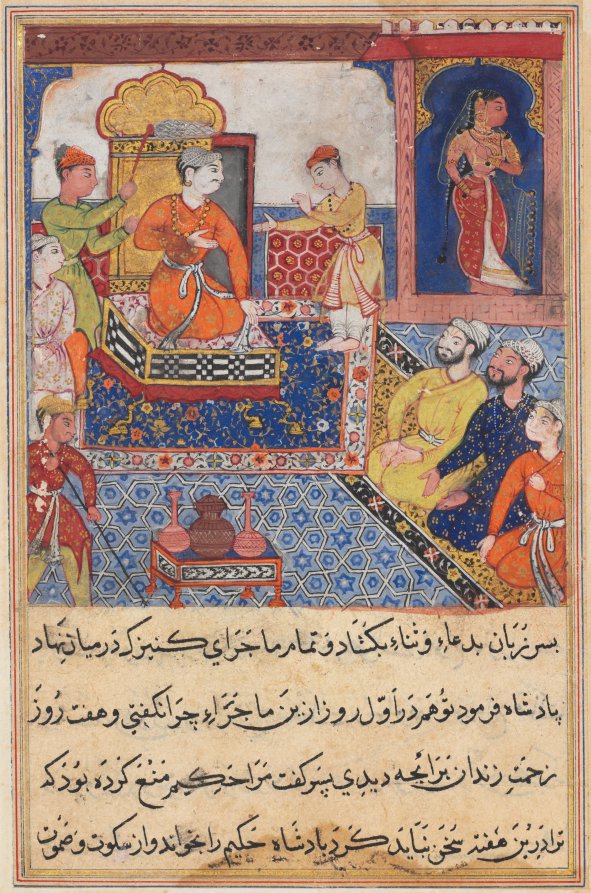 پس زبان بدعاء و ثناء بکشاد و تمام ماجرای کنیزک در میان نهاد
پادشاه فرمود تو هم در اول روز ازین ماجراء چرا نکفتی و هفت روز
زحمت زندان برائچه دیدی پسر کفت مرا حکیم منع کرده بود که
ترا درین هفته سخن نباید کرد پادشاه حکیم را بخواند و از سکوت و صموت